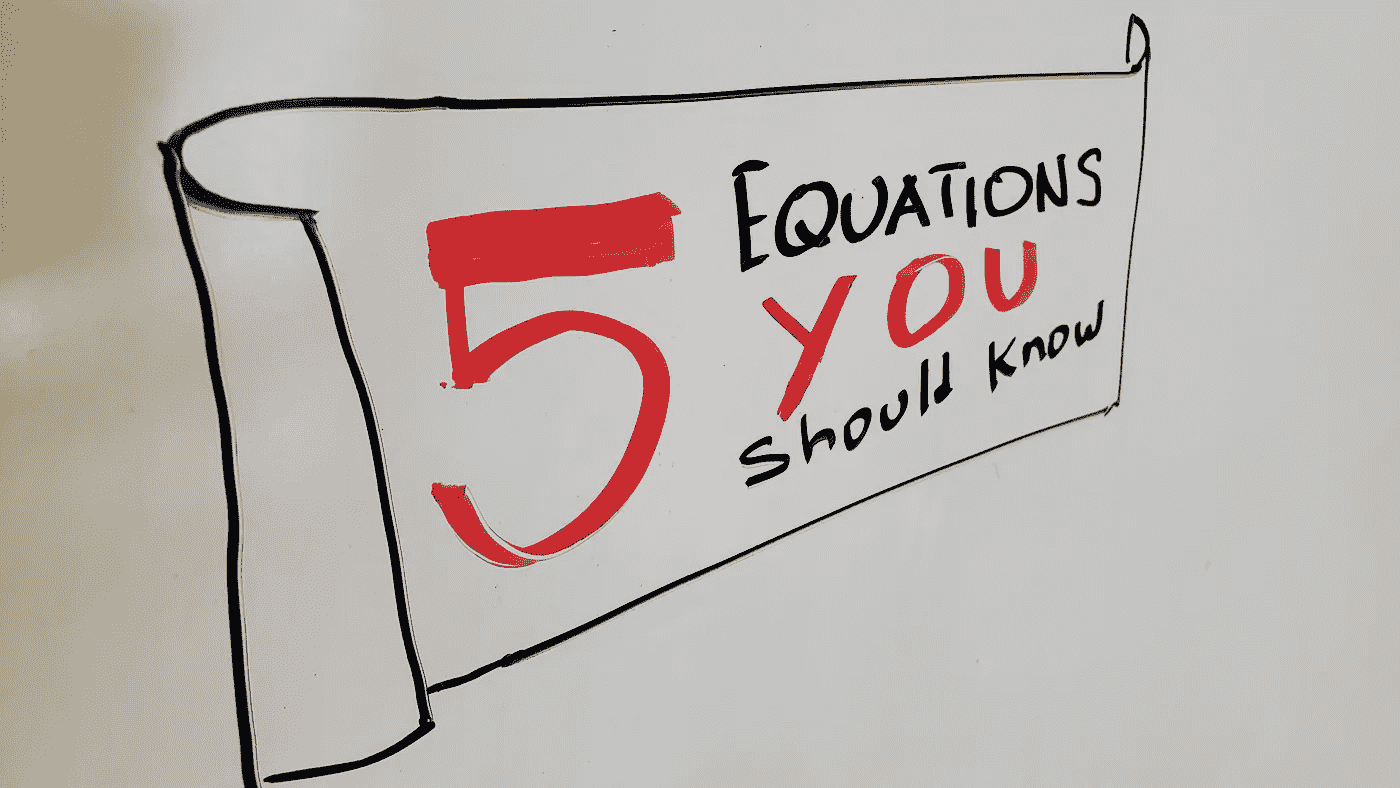 5
EQUATIONS
YOU
should know